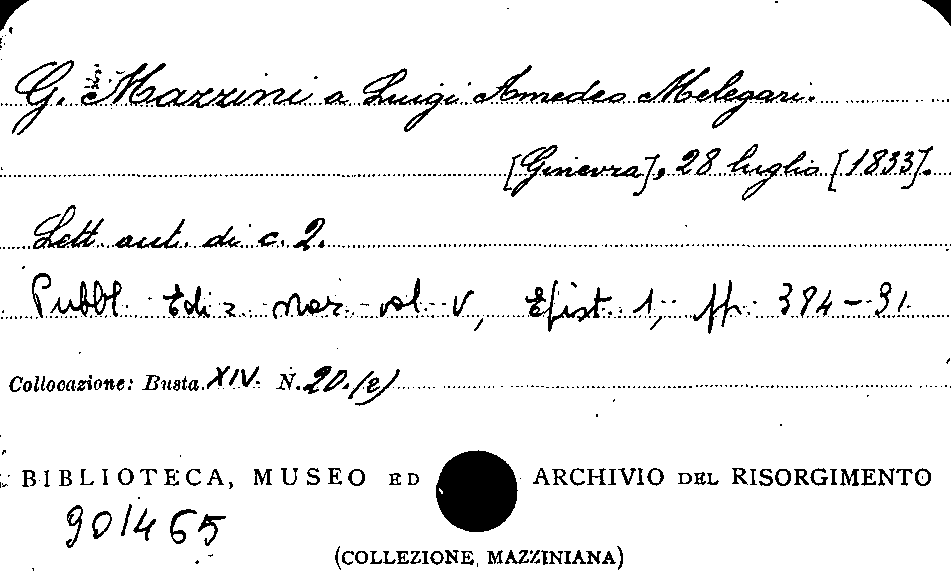 G. Mazzini a Luigi Amedeo Melegari.
[Ginevra], 28 luglio [1833].
Lett. aut. di c. 2.
Pubbl. Ediz. naz. vol. V, Epist. 1, pp. 384-91
Collocazione: Busta XIV. N. 20. (2)
BIBLIOTECA, MUSEO ED ARCHIVIO DEL RISORGIMENTO
901465
(COLLEZIONE MAZZINIANA)